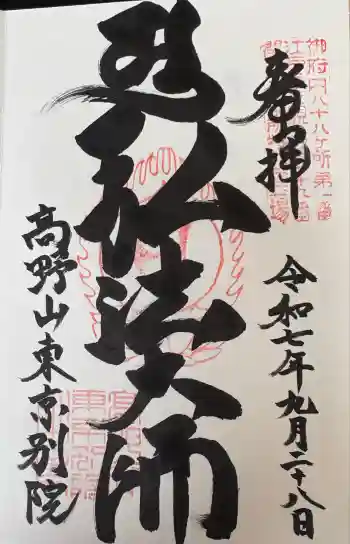 奉拝
御府内八十八ヶ所第一番
令和七年九月二十八日
弘法大師
高野山東京別院